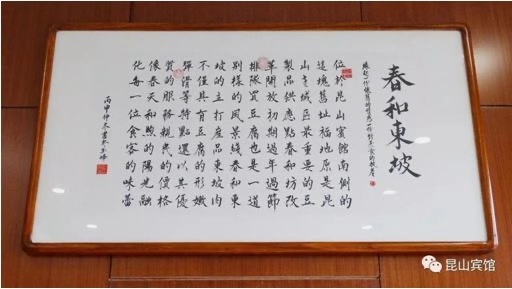 春和東坡
緣起一份懷舊的情愫一份對美食的執著
位於昆山賓館南側的
這塊舊址福地原是昆
山老城區最重要的豆
製品供應點春和坊改
革開放初期過年過節
排隊買豆腐也是一道
別樣的風景綫春和東
坡的主打産品東坡肉
不僅具有豆腐的形嫩
彈滑等特點還以其優
質的服務親民的價格
像春天和煦的陽光融
化每一位食客的味蕾
丙申仲冬
昆山宾馆